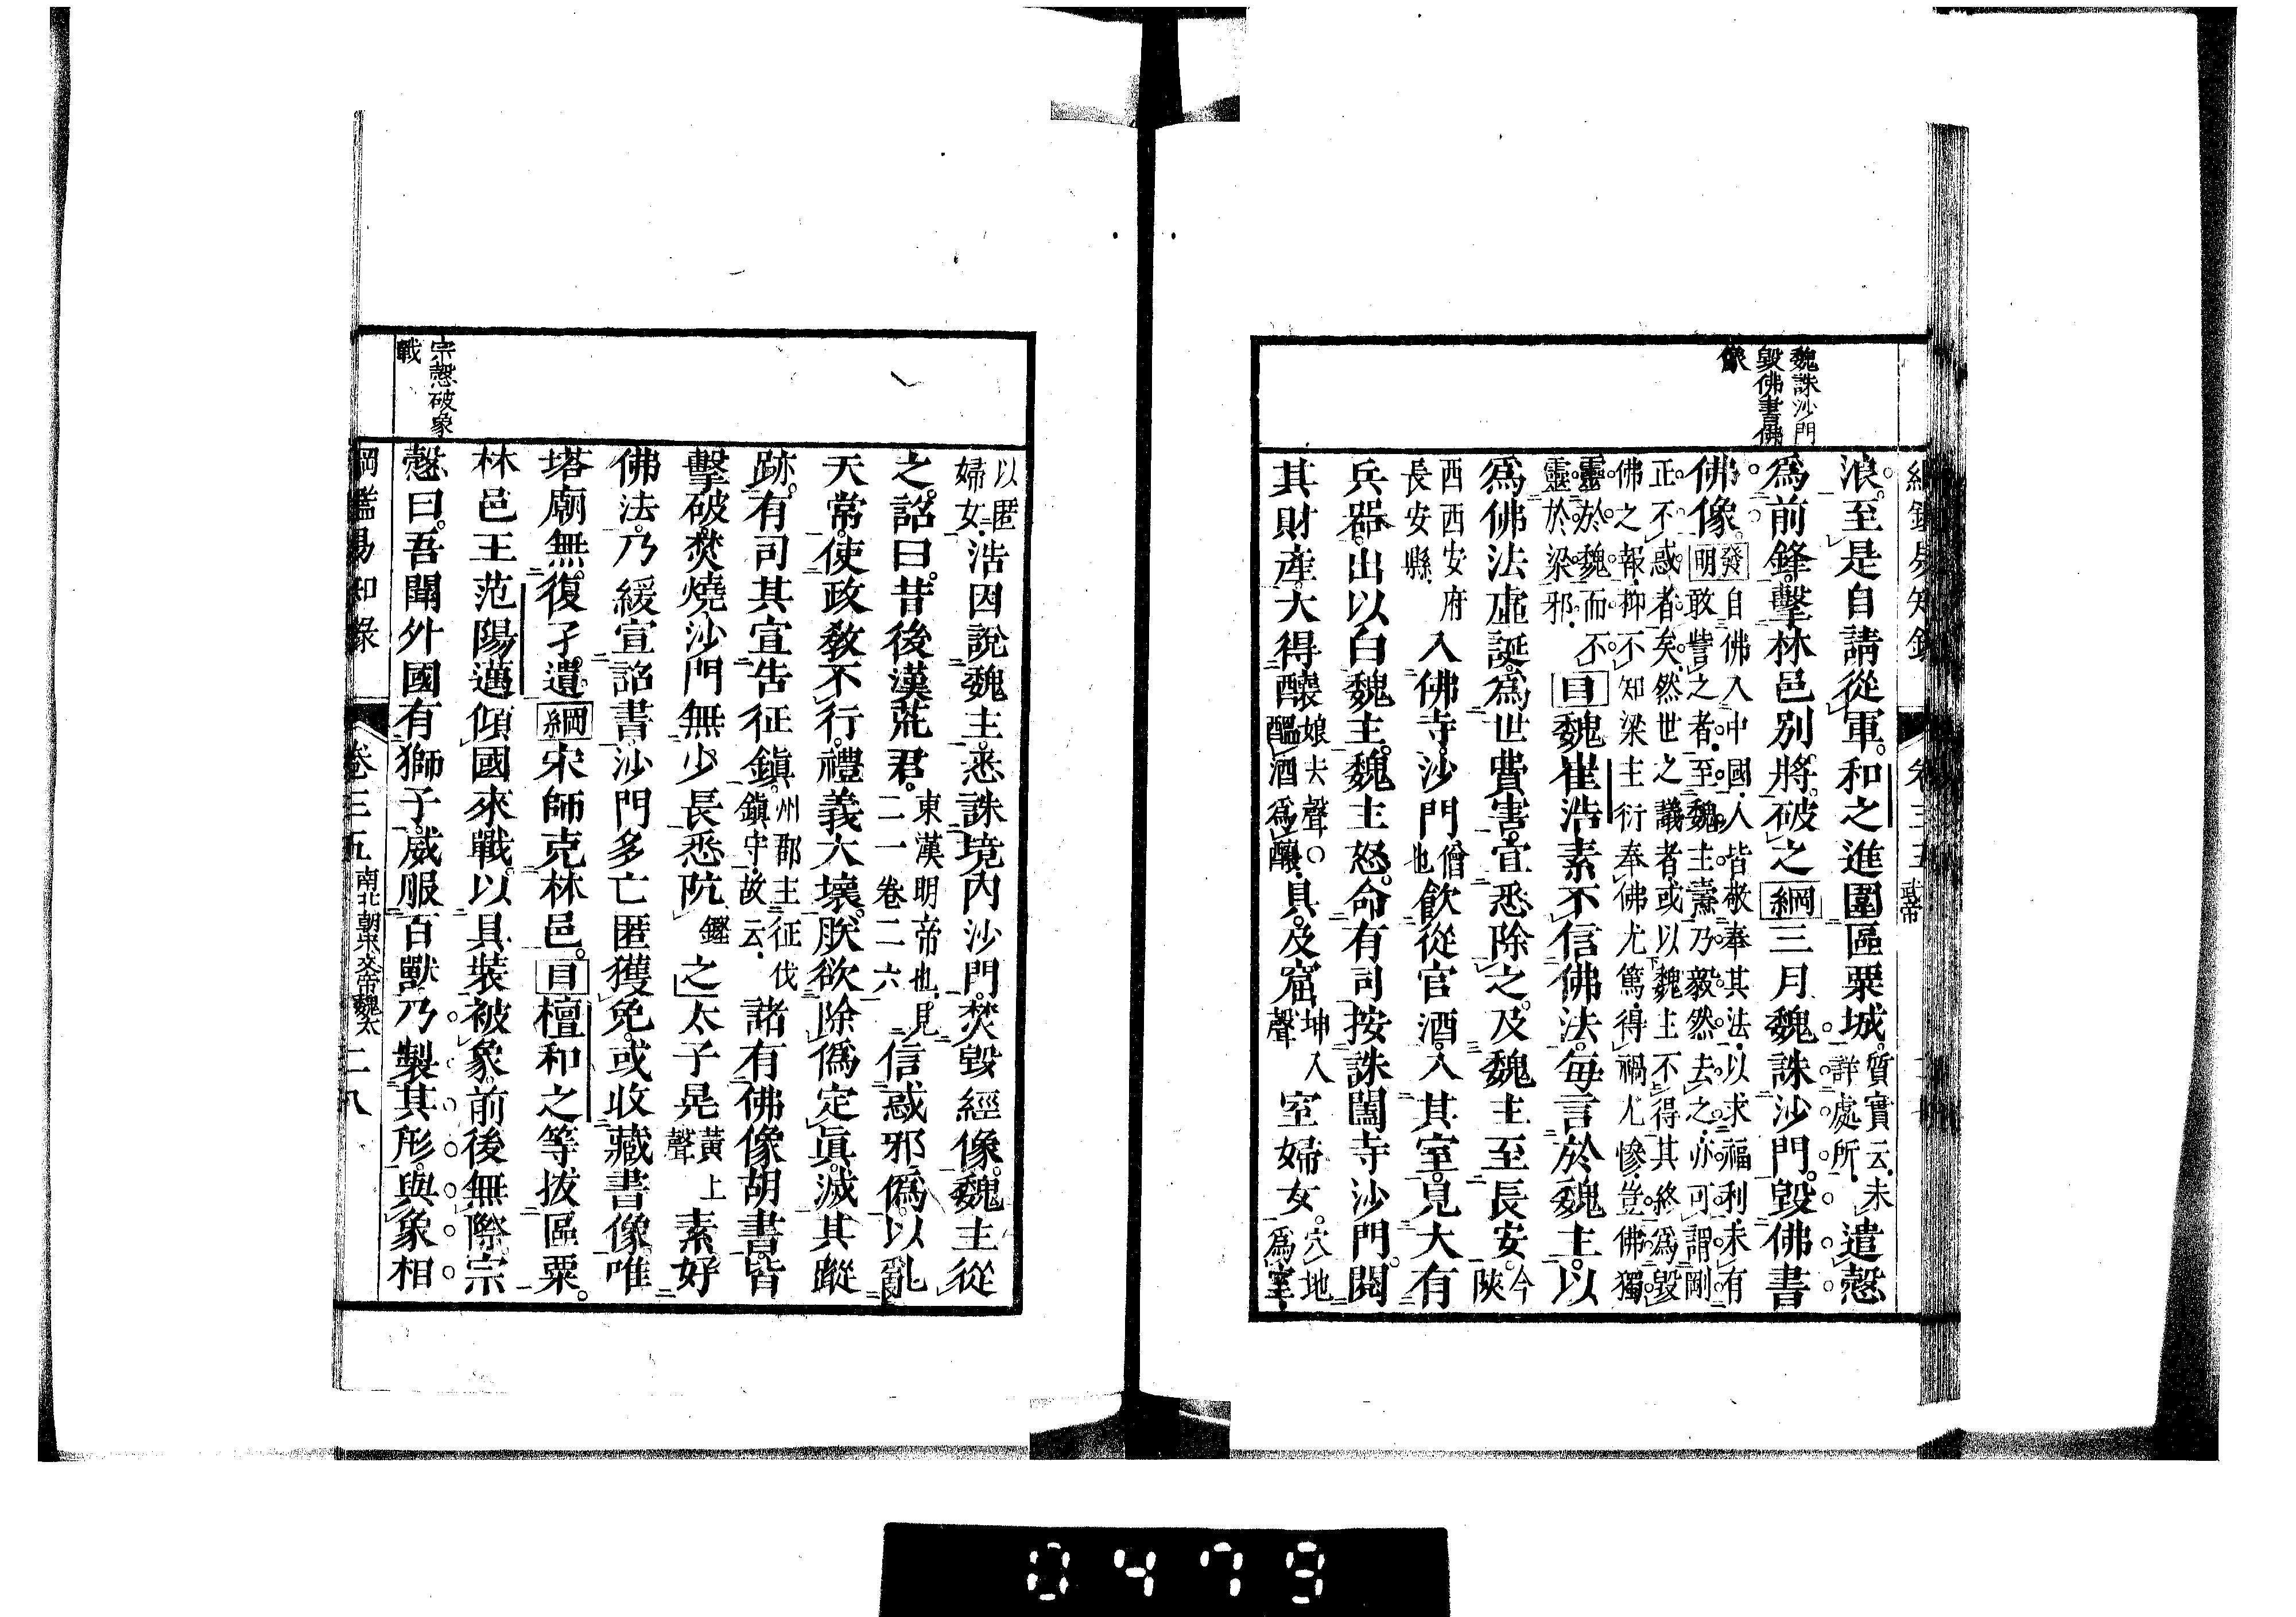 魏誅沙門
毀佛書佛
像
浪至是自請從軍和之進圍區粟城質實云未詳處所遣慤
爲前鋒擊林邑別將破之綱三月魏誅沙門毀佛書
佛像發明自佛入中國人皆敬奉其法以求福利未有敢訾之者至魏主燾乃毅然去之亦可謂剛
正不惑者矣然世之議者或以魏主不得其終爲毀佛之報抑不知梁主衍奉佛尤篤得禍尤慘豈佛獨
靈於魏而不靈於梁邪目魏崔浩素不信佛法每言於魏主以
爲佛法虛誕爲世費害宜悉除之及魏主至長安今陝
西西安府長安縣入佛寺沙門僧也飲從官酒入其室見大有
兵器出以白魏主魏主怒命有司按誅闔寺沙門閱
其財產大得釀娘去聲○醞酒爲釀具及窟坤入聲室婦女穴地爲室
以匿婦女浩因說魏主悉誅境內沙門焚毀經像魏主從
之詔曰昔後漢荒君東漢明帝也見二一卷二六信惑邪僞以亂
天常使政敎不行禮義大壞朕欲除僞定眞滅其蹤
跡有司其宣告征鎭州郡主征伐鎭守故云諸有佛像胡書皆
擊破焚燒沙門無少長悉阬鏗之太子晃黃上聲素好
佛法乃緩宣詔書沙門多亡匿獲免或收藏書像唯
塔廟無復孑遺綱宋師克林邑目檀和之等拔區粟
林邑王范陽邁傾國來戰以具裝被象前後無際宗
慤曰吾聞外國有獅子威服百獸乃製其形與象相
宗慤破象
戰
綱鑑易知錄 卷三五 南北朝宋文帝魏太 二八